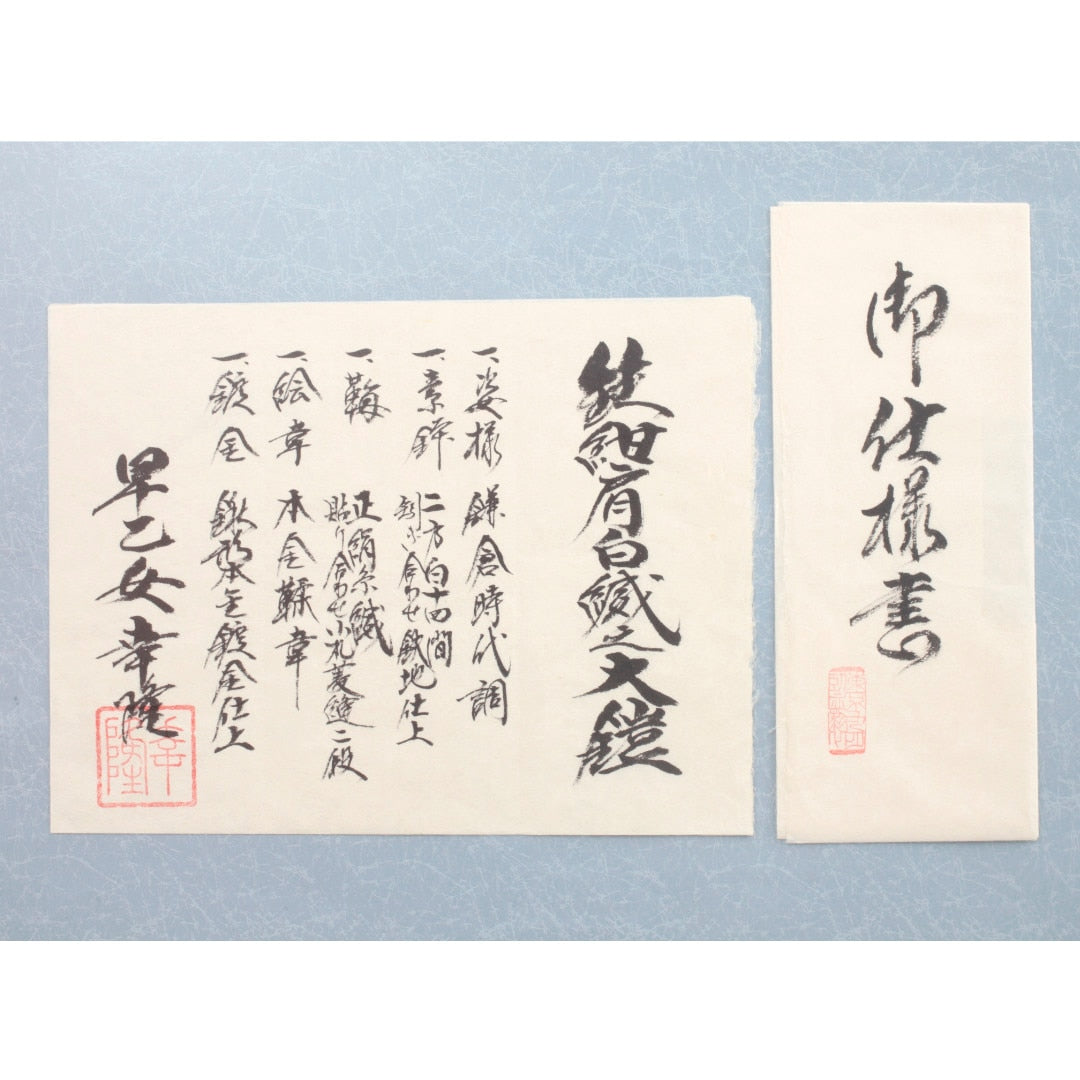 御仕様書
紺肩白縅之大鎧
一、姿様 鎌倉時代調
一、鉢 二方白十四間
矧ぎ合わせ鉄地仕上
一、 正絹糸縅
貼り合わせ小札菱縫二段
一、絵韋 本金鞣韋
一、鍍金 鍬形本金鍍金仕上
早乙女幸隆
幸隆